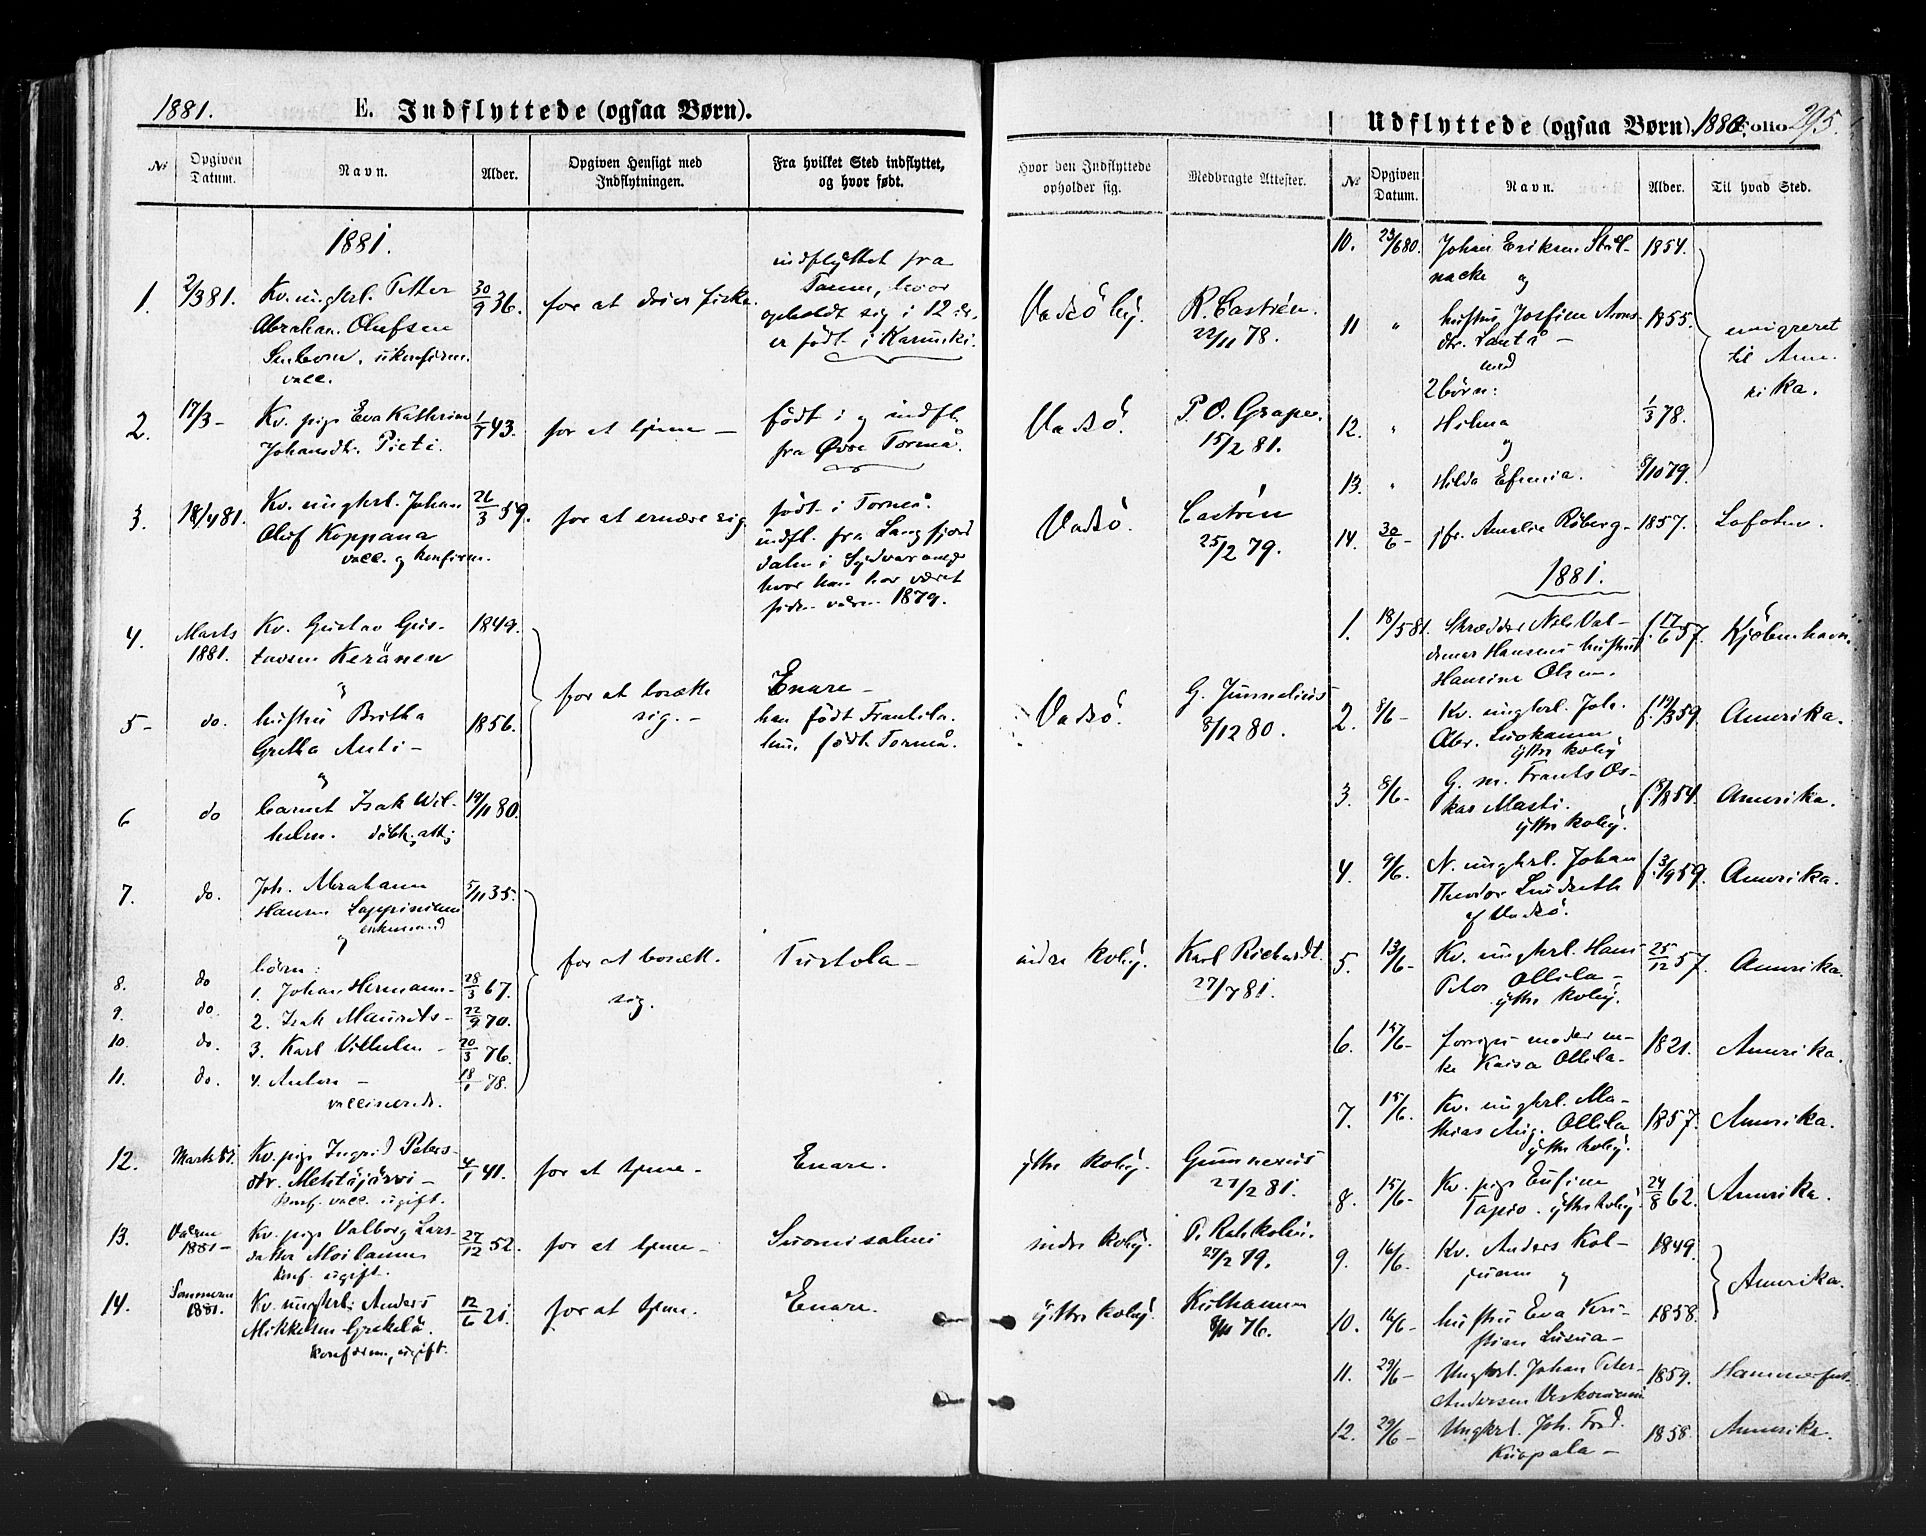 1881.
E. Indflyttede (ogsaa Børn).
№
Opgiven Datum.
Navn.
Alder.
Opgiven Hensigt med Indflytningen.
Fra hvilket Sted indflyttet, og hvor født.
1881.
1.
2/3 81.
Kv. ungkrl. Petter
Abraham Olufsen
ukonfirm.
vacc.
30/9 36.
for at drive fiske.
indflyttet fra
hvor
opholdt sig i 12 år,
er født i Karunki.
2.
17/3 –
Kv. pige Eva Kathrine
Johansdtr. Pieti.
43.
for at tjene –
født i og indfl.
fra Øvre Torneå.
3.
18/4 81.
Kv. ungkrl. Johan
Oluf Koppana
vacc. og konfirm.
26/3 59.
for at ernære sig.
født i Torneå.
indfl. fra Langfjord
dalen i Sydvaranger
hvor han har været
siden våren 1879.
4.
Marts
1881.
Kv. Gustav Gus-
tavsen Keränen
og
1849.
5 –
do.
hustru Britha
Gretha Anti –
og
1856.
for at bosætte
sig. –
Enare –
han født Frantsila.
hun født Torneå.
6
do
barnet Isak Wil-
helm. døbt, att.
19/11 80.
7.
do.
Joh. Abraham
Hansen Lappinen
enkemand
og
5/11 35.
børn:
8.
do
1. Johan Hermann –
28/3 67.
9.
do.
2. Isak Maurits –
22/9 70.
10.
do.
3. Karl Vilhelm –
20/3 76.
11.
do.
4. Anton –
vaccinerede.
18/1 78.
for at bosætt.
sig.
Turtola –
12.
Marts 81.
Kv. pige Ingrid Peters-
dtr. Mehtäjärvi –
konf. vacc. ugift.
4/1 41.
for at tjene –
Enare.
13.
Våren
1881 –
Kv. pige Valborg Lars-
datter Moilanen
konf. ugift.
27/12 52.
for at tjene –
Suomisalmi
14.
Sommeren
1881.
Kv. ungkrl. Anders
Mikkelsen
konfirm., ugift.
12/6 21.
for at tjene.
Enare.
Udflyttede (ogsaa Børn).
1880.
Folio
295.
Hvor den Indflyttede opholder sig.
Medbragte Attester.
№
Opgiven Datum.
Navn.
Alder.
Til hvad Sted.
Vadsö by.
R. Castrén.
22/11 78.
Vadsö.
P. O. Grape.
15/2 81.
Vadsö.
Castrén
25/2 79.
Vadsö.
G. Junnelius
8/12 80.
indre Kvby.
Karl Richardt.
27/7 81.
ytre Kvby.
Gummerus
27/2 81.
indre Kvby.
27/2 79.
ytre Kvby.
8/11 76.
10.
23/6 80.
Johan Eriksen Stål-
nacke og
1854.
11
"
hustru Josefine Arons-
dtr. –
med
2 børn:
1855.
12.
"
Hilma
og
1/3 78.
13.
"
Hilda Efemia.
8/10 79.
emigreret
til Ame-
rika.
14.
30/6 –
jfr. Amelie Röberg –
1857.
Lofoten.
1881.
1.
18/5 81.
Skrædder Nils Val-
demar Hansens hustru
Hansine Olsen.
f. 17/6 57.
Kjøbenhavn.
2.
8/6 –
Kv. ungkrl. Joh.
Abr.
ytre Kvby
f. 19/3 59.
Amerika.
3.
8/6 –
G. m. Frants Os-
kar Masti.
ytre Kvby.
f. 18/8 54.
Amerika.
4.
9/6 –
N. ungkrl. Johan
Theodor Lindseth
af Vadsö.
f. 3/9 59.
Amerika.
5.
13/6 –
Kv. ungkrl. Hans
Peter Ollila –
ytre Kvby.
25/12 57.
Amerika.
6.
15/6 –
forriges moder en-
ke Kaisa Ollila –
1821.
Amerika.
7.
15/6 –
Kv. ungkrl. Ma-
thias Aug. Ollila
ytre Kvby.
1857.
Amerika.
8.
15/6 –
Kv. pige Eufine
Tapio. ytre Kvby.
24/8 62.
Amerika.
9.
16/6 –
Kv. Anders Kol-
juanen og
1849.
10.
16/6 –
hustru Eva Kri-
stian –
1858.
Amerika.
11.
29/6 –
Ungkrl. Johan Peter
Andersen
1859.
Hammerfest.
12.
29/6 –
Ungkrl. Joh. Fred.
Kurpala –
1858.
Amerika.